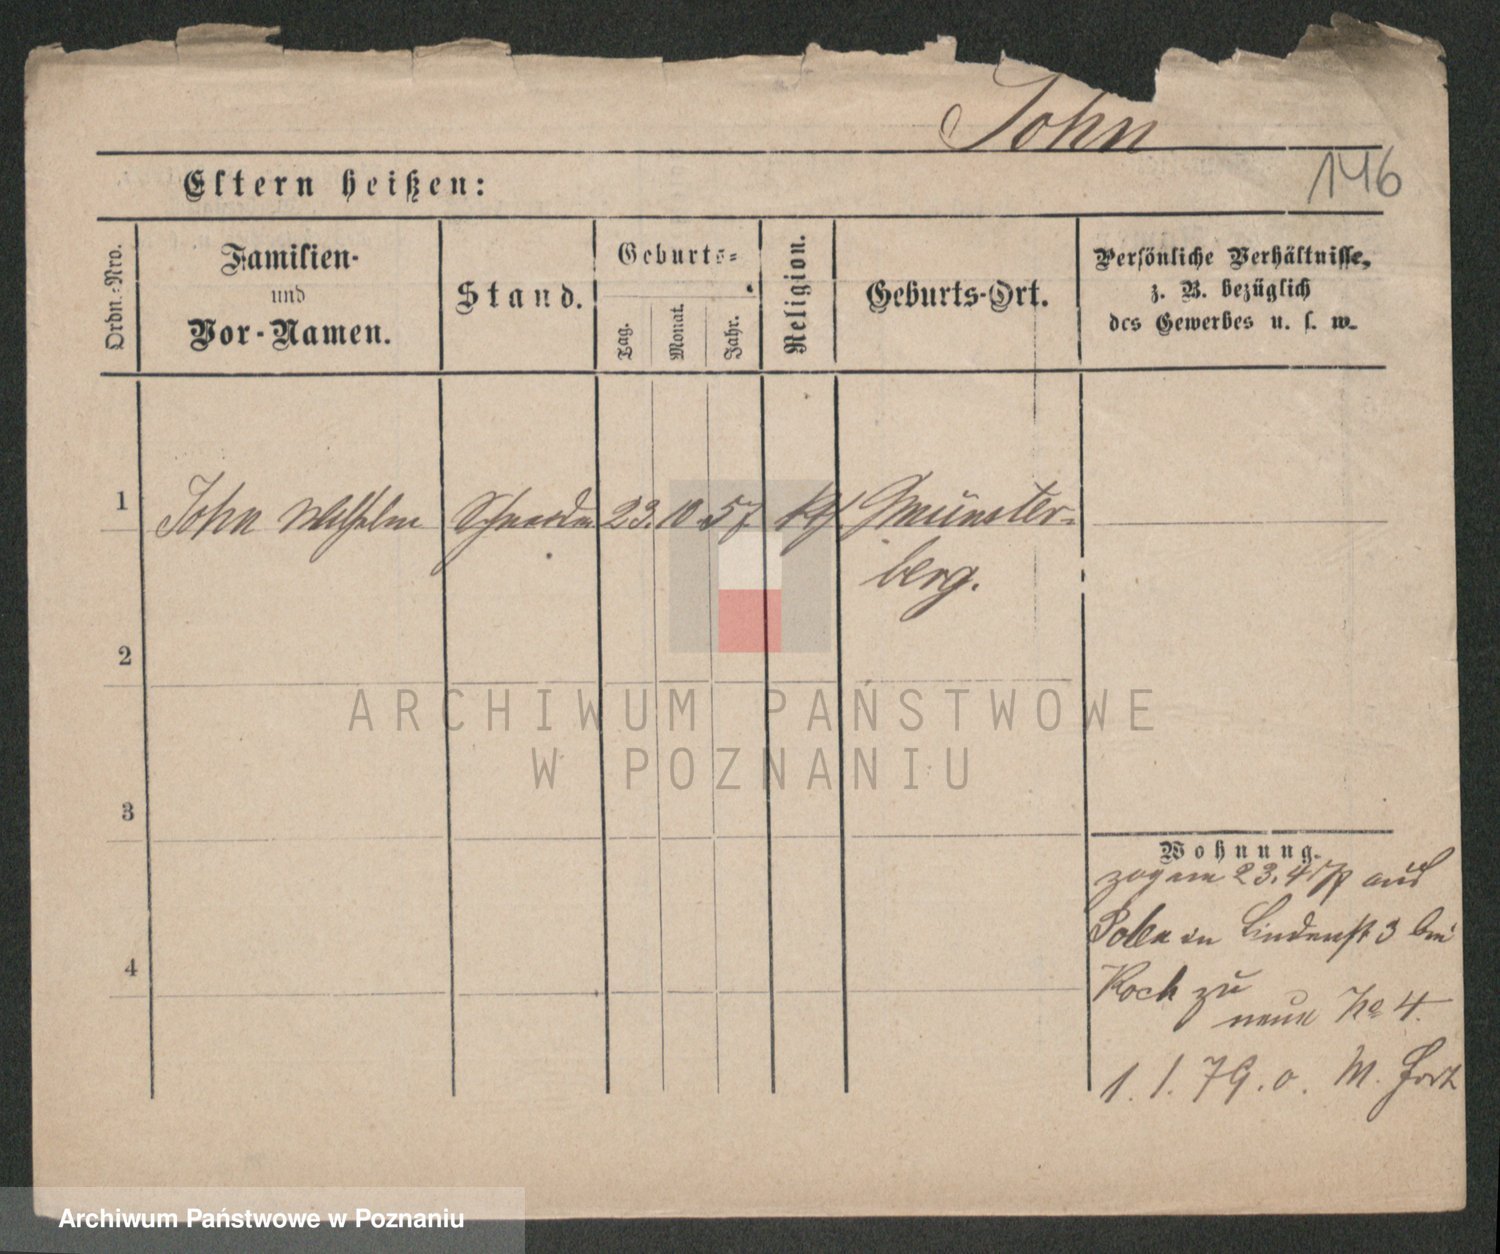 John
146
Eltern heißen:
Ordn.-Nro.
Familien-
und
Vor-Namen.
Stand.
Geburts-
Tag.
Monat.
Jahr.
Religion.
Geburts-Ort.
Persönliche Verhältnisse,
z. B. bezüglich
des Gewerbes u. s. w.
1
John Wilhelm
23. 10 57
Münster-
berg.
2
3
4
Wohnung.
23. 4 aus
in Lindenstr 3 bei
Koch zu
neue No 4.
1. 1. 79. o. M. fort
ARCHIWUM PAŃSTWOWE
W POZNANIU
Archiwum Państwowe w Poznaniu